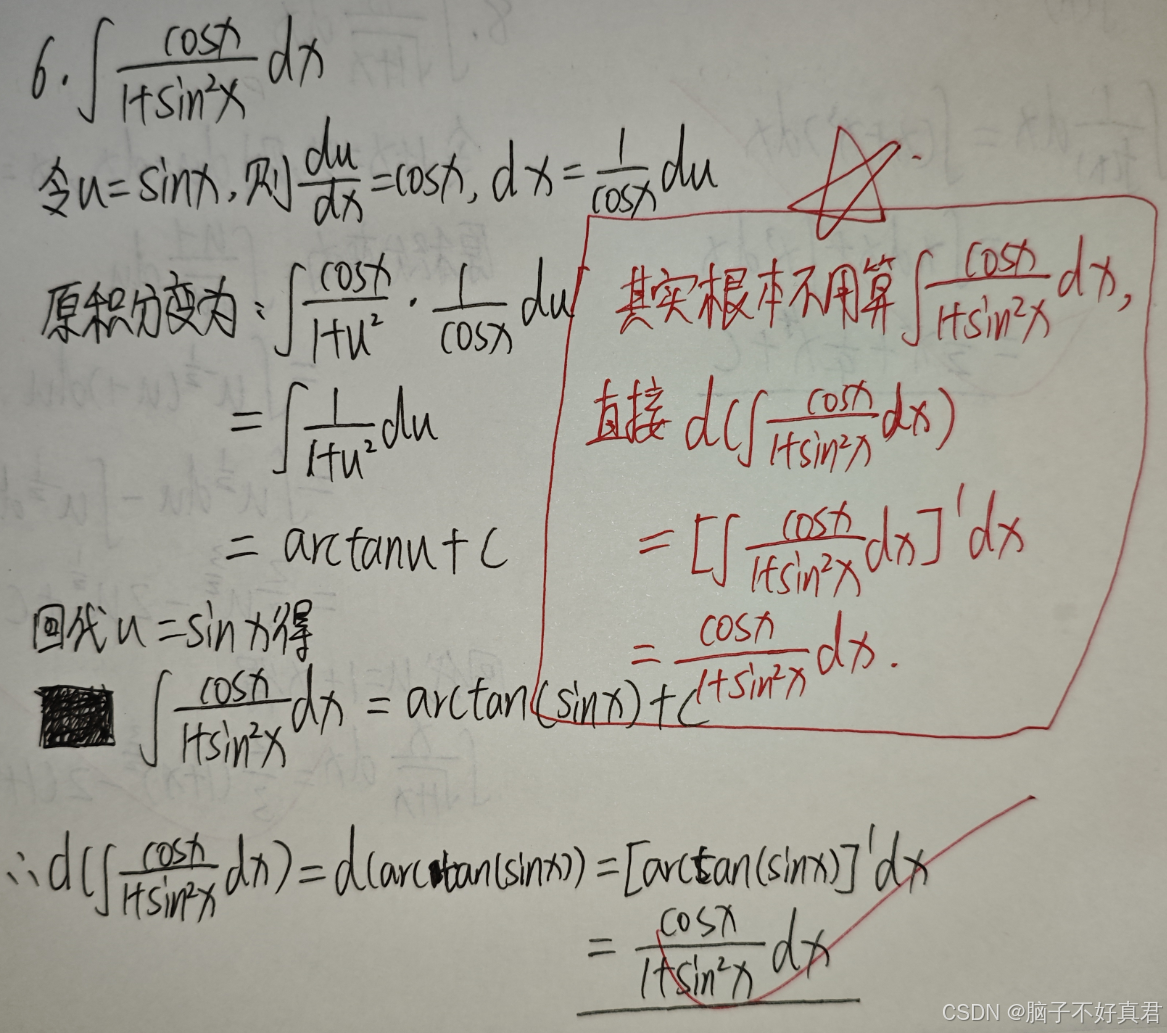 6. ∫ cosx/(1+sin²x) dx
令u=sinx, 则 du/dx = cosx, dx = 1/cosx du
原积分变为: ∫ cosx/(1+u²) · 1/cosx du
= ∫ 1/(1+u²) du
= arctanu + C
回代u=sinx得
∫ cosx/(1+sin²x) dx = arctan(sinx)+C
∴ d(∫ cosx/(1+sin²x) dx) = d(arctan(sinx)) = [arctan(sinx)]'dx
= cosx/(1+sin²x) dx
其实根本不用算∫ cosx/(1+sin²x) dx,
直接 d(∫ cosx/(1+sin²x) dx)
= [∫ cosx/(1+sin²x) dx]'dx
= cosx/(1+sin²x) dx.
CSDN @脑子不好真君